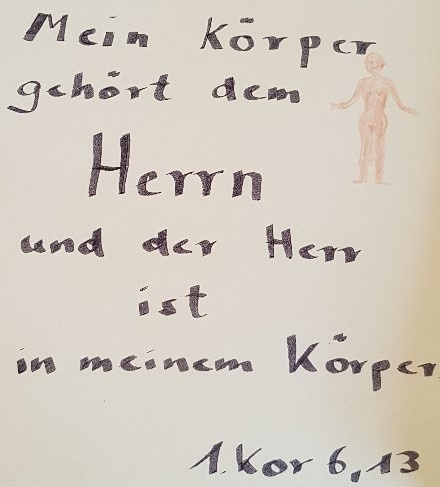 Mein Körper
gehört dem
Herrn
und der Herr
ist
in meinem Körper
1.Kor 6,13